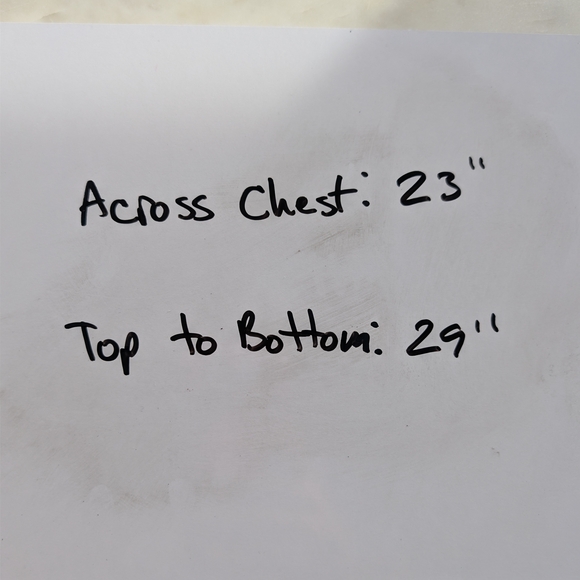 Across Chest: 23"
Top to Bottom: 29"